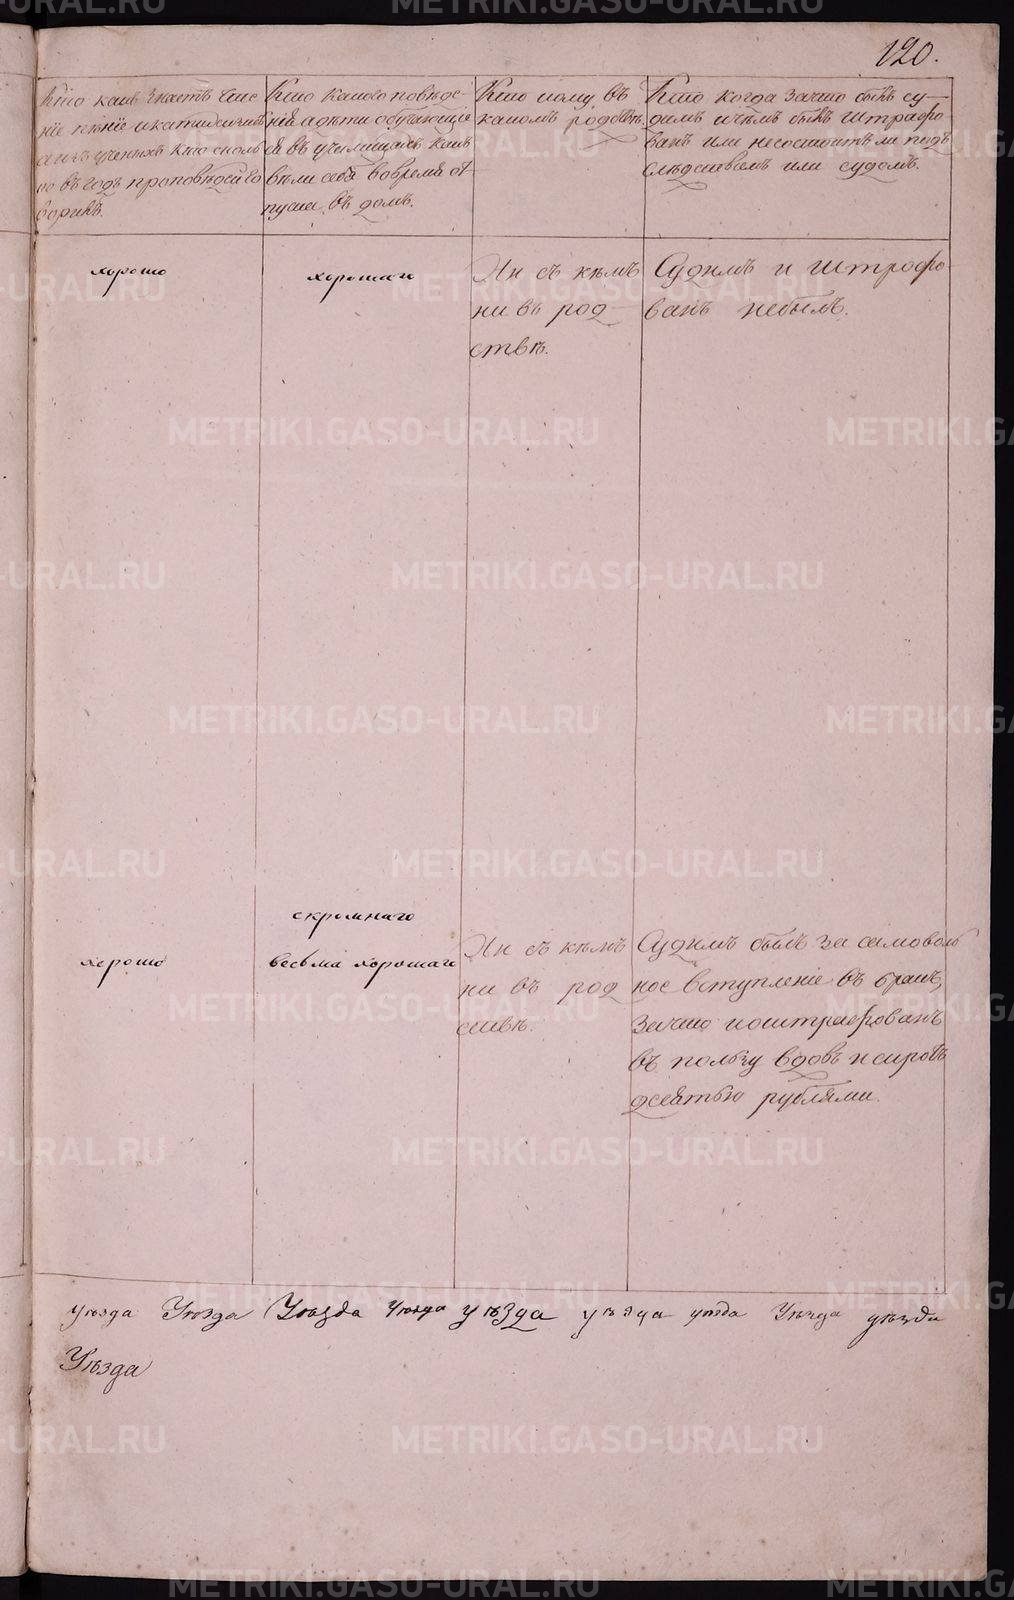 120.
Кто какъ знаетъ чте
ніе пѣніе и катихизисъ
а изъ ученыхъ кто сколь
ко въ годъ проповѣдей го
ворилъ.
Кто какого поведе-
нія а дѣти обучающіе
ся въ училищахъ какъ
вѣли себя вовремя от
пуска въ домъ.
Кто кому въ
какомъ родствѣ.
Кто когда зачто былъ су-
димъ и чѣмъ былъ штрафо
ванъ или несостоитъ ли подъ
слѣдствіемъ или судомъ.
хорошо
хорошаго
Ни съ кѣмъ
ни въ род-
ствѣ.
Судимъ и штрафо-
ванъ небылъ.
хорошо
скромнаго
весьма хорошаго
Ни съ кѣмъ
ни въ род
ствѣ.
Судимъ былъ за самоволь
ное вступленіе въ бракъ,
зачто и оштрафованъ
въ пользу вдовъ и сиротъ
десятью рублями.
уѣзда Уѣзда Уѣзда Уѣзда уѣзда уѣзда уѣзда Уѣзда уѣзда
Уѣзда
METRIKI.GASO-URAL.RU